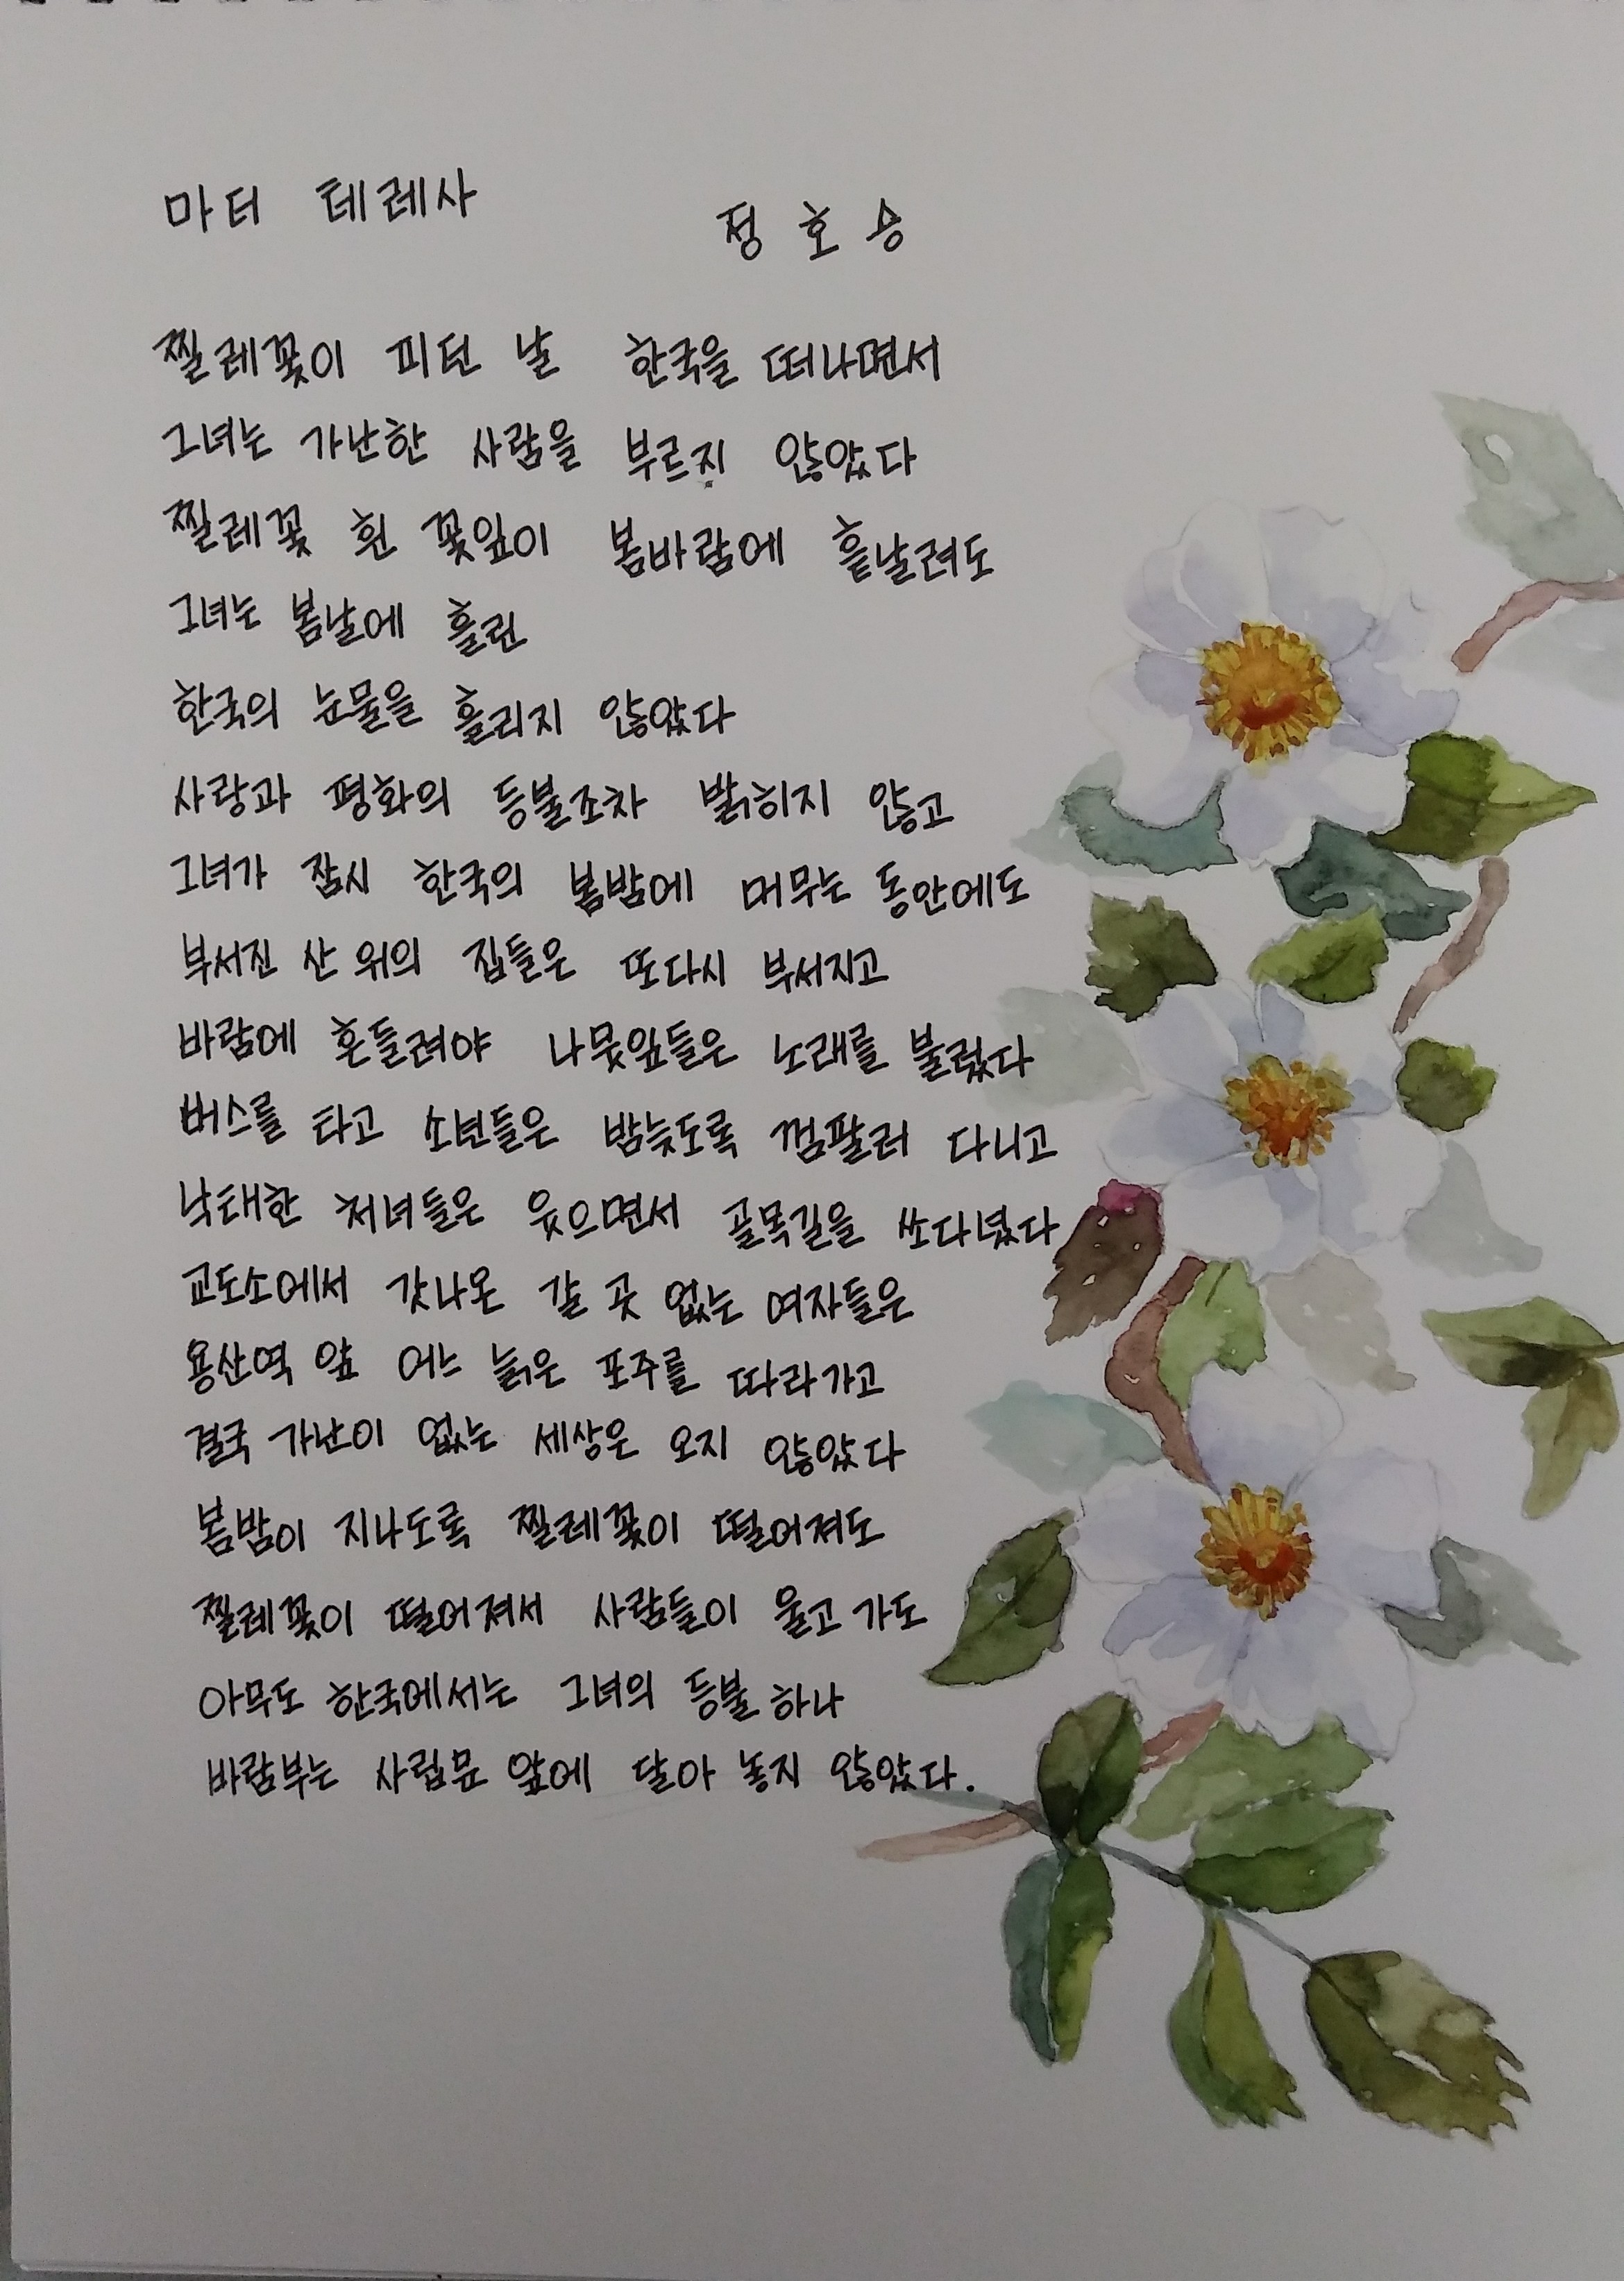 마더 테레사
정호승
찔레꽃이 피던 날 한국을 떠나면서
그녀는 가난한 사람을 부르지 않았다
찔레꽃 흰 꽃잎이 봄바람에 흩날려도
그녀는 봄날에 흘린
한국의 눈물을 흘리지 않았다
사랑과 평화의 등불조차 밝히지 않고
그녀가 잠시 한국의 봄밤에 머무는 동안에도
부서진 산 위의 집들은 또다시 부서지고
바람에 흔들려야 나뭇잎들은 노래를 불렀다
버스를 타고 소년들은 밤늦도록 껌팔러 다니고
낙태한 처녀들은 웃으면서 골목길을 쏘다녔다
교도소에서 갓나온 갈 곳 없는 여자들은
용산역 앞 어느 늙은 포주를 따라가고
결국 가난이 없는 세상은 오지 않았다
봄밤이 지나도록 찔레꽃이 떨어져도
찔레꽃이 떨어져서 사람들이 울고 가도
아무도 한국에서는 그녀의 등불 하나
바람부는 사립문 앞에 달아 놓지 않았다.